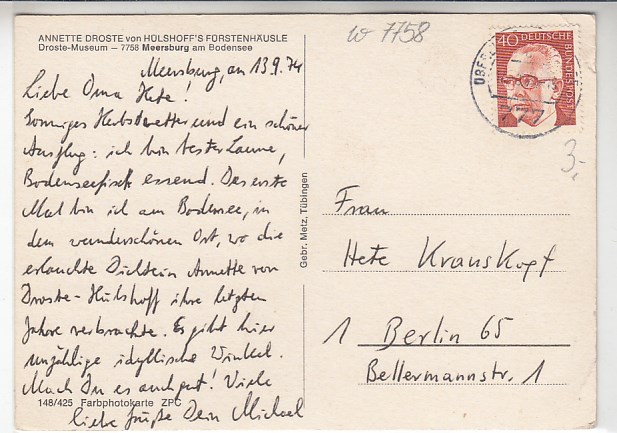 ANNETTE DROSTE von HÜLSHOFF'S FÜRSTENHÄUSLE
Droste-Museum — 7758 Meersburg am Bodensee
W 7758
Meersburg, am 13.9.74
Liebe Oma Hete!
Sonniges Herbstwetter und ein schöner
Ausflug: ich bin bester Laune,
Bodenseefisch essend. Das erste
Mal bin ich am Bodensee, in
dem wunderschönen Ort, wo die
erlauchte Dichterin Annette von
Droste-Hülshoff ihre letzten
Jahre verbrachte. Es gibt hier
unzählige idyllische Winkel.
Mach Du es auch gut! Viele
liebe Grüße Dein Michael
148/425 Farbphotokarte ZPC
Gebr. Metz, Tübingen
40 DEUTSCHE
BUNDESPOST
777
3,-
Frau
Hete Kranskopf
1 Berlin 65
Bellermannstr. 1